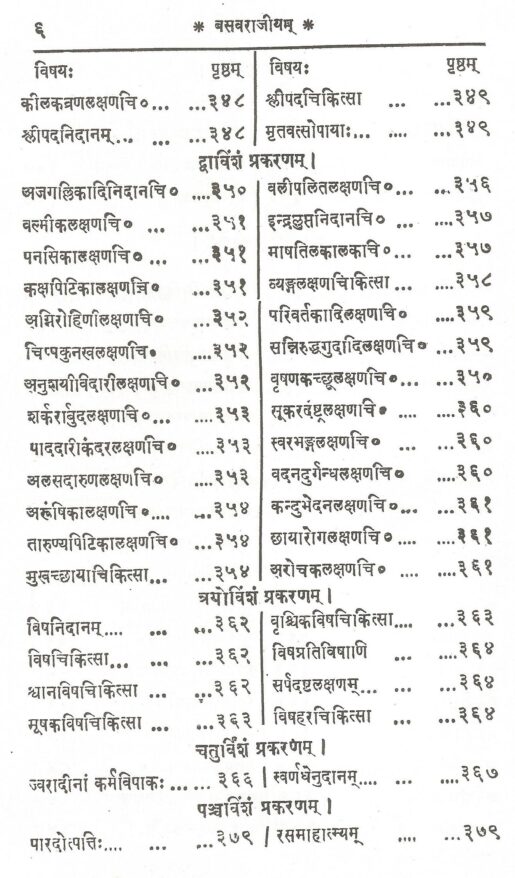 ६ * बसवराजीयम् *
विषयः पृष्ठम्
कीलकव्रणलक्षणचि०... ...३४८
श्लीपदनिदानम्... ... ...३४८
विषयः पृष्ठम्
श्लीपदचिकित्सा ... ...३४९
मृतवत्सोपायाः... .... ...३४९
द्वाविंशं प्रकरणम् ।
अजगल्लिकादिनिदानचि० ....३५०
वल्मीकलक्षणचि० ... ...३५१
पनसिकालक्षणचि० ... ...३५१
कक्षपिटिकालक्षणचि० ...३५१
अग्निरोहिणीलक्षणाचि० ...३५२
चिप्पकुनखलक्षणचि० ....३५२
अनुशयीविदारीलक्षणचि० ...३५२
शर्करार्बुदलक्षणाचि०... ...३५३
पाददारीकंदरलक्षणचि० ....३५३
अलसदारुणलक्षणचि० ....३५३
अरूंषिकालक्षणचि०.... ...३५४
तारुण्यपिटिकालक्षणचि० ...३५४
मुखच्छायाचिकित्सा... ...३५४
वलीपलितलक्षणचि०... ...३५६
इन्द्रलुप्तनिदानचि० ... ...३५७
माषतिलकालकाचि०... ...३५७
व्यङ्गलक्षणचिकित्सा ... ...३५८
परिवर्तकादिलक्षणचि० ....३५९
सन्निरुद्धगुदादिलक्षणचि० ...३५९
वृषणकच्छूलक्षणचि० ...३५०
सूकरदंष्ट्रलक्षणाचि० .... ....३६०
स्वरभङ्गलक्षणचि० ... ...३६०
वदनदुर्गन्धलक्षणचि० ....३६०
कन्दुभेदनलक्षणचि०... ...३६१
छायारोगलक्षणचि० .... ....३६१
अरोचकलक्षणचि० .... ....३६१
त्रयोविंशं प्रकरणम् ।
विषनिदानम्.... ... ...३६२
विषचिकित्सा... ... ...३६२
श्वानविषचिकित्सा ... ...३६२
मूषकविषचिकित्सा ... ...३६३
वृश्चिकविषचिकित्सा.... ...३६३
विषप्रतिविषाणि ... ....३६४
सर्पदष्टलक्षणम्... ... ....३६४
विषहरचिकित्सा ... ...३६४
चतुर्विंशं प्रकरणम् ।
ज्वरादीनां कर्मविपाकः... ... ३६६
स्वर्णधेनुदानम्.... .... ...३६७
पञ्चविंशं प्रकरणम् ।
पारदोत्पत्तिः.... ... ...३७९
रसमाहात्म्यम् .... ...३७९